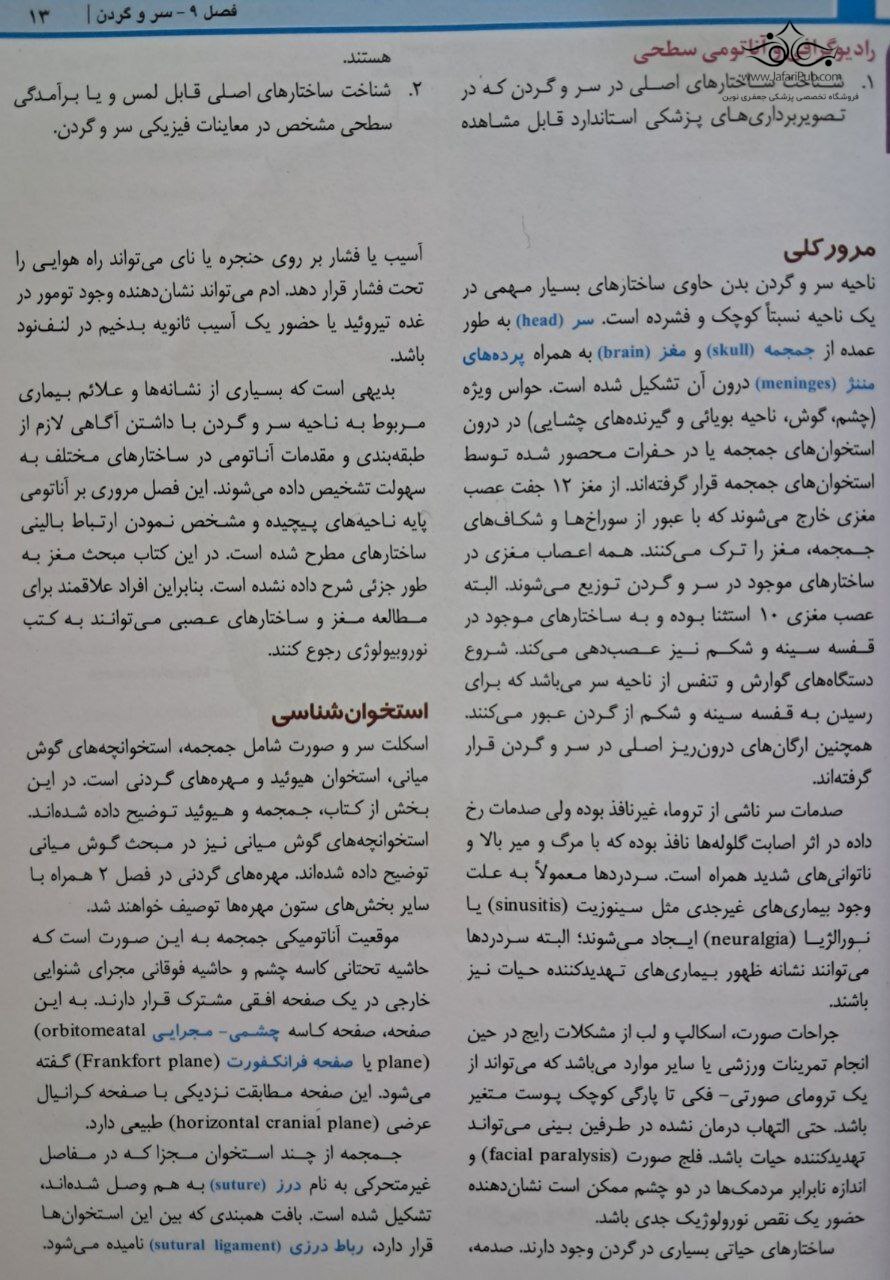 فصل ۹ - سر و گردن | ۱۳
رادیوگرافی و آناتومی سطحی
www.JafariPub.com
فروشگاه تخصصی پزشکی جعفری نوین
۱. شناخت ساختارهای اصلی در سر و گردن که در
تصویربرداری‌های پزشکی استاندارد قابل مشاهده
هستند.
۲. شناخت ساختارهای اصلی قابل لمس و یا برآمدگی
سطحی مشخص در معاینات فیزیکی سر و گردن.
مرور کلی
ناحیه سر و گردن بدن حاوی ساختارهای بسیار مهمی در
یک ناحیه نسبتاً کوچک و فشرده است. سر (head) به طور
عمده از جمجمه (skull) و مغز (brain) به همراه پرده‌های
مننژ (meninges) درون آن تشکیل شده است. حواس ویژه
(چشم، گوش، ناحیه بویائی و گیرنده‌های چشایی) در درون
استخوان‌های جمجمه یا در حفرات محصور شده توسط
استخوان‌های جمجمه قرار گرفته‌اند. از مغز ۱۲ جفت عصب
مغزی خارج می‌شوند که با عبور از سوراخ‌ها و شکاف‌های
جمجمه، مغز را ترک می‌کنند. همه اعصاب مغزی در
ساختارهای موجود در سر و گردن توزیع می‌شوند. البته
عصب مغزی ۱۰ استثنا بوده و به ساختارهای موجود در
قفسه سینه و شکم نیز عصب‌دهی می‌کند. شروع
دستگاه‌های گوارش و تنفس از ناحیه سر می‌باشد که برای
رسیدن به قفسه سینه و شکم از گردن عبور می‌کنند.
همچنین ارگان‌های درون‌ریز اصلی در سر و گردن قرار
گرفته‌اند.
صدمات سر ناشی از تروما، غیرنافذ بوده ولی صدمات رخ
داده در اثر اصابت گلوله‌ها نافذ بوده که با مرگ و میر بالا و
ناتوانی‌های شدید همراه است. سردردها معمولاً به علت
وجود بیماری‌های غیرجدی مثل سینوزیت (sinusitis) یا
نورالژیا (neuralgia) ایجاد می‌شوند؛ البته سردردها
می‌توانند نشانه ظهور بیماری‌های تهدیدکننده حیات نیز
باشند.
جراحات صورت، اسکالپ و لب از مشکلات رایج در حین
انجام تمرینات ورزشی یا سایر موارد می‌باشد که می‌تواند از
یک ترومای صورتی- فکی تا پارگی کوچک پوست متغیر
باشد. حتی التهاب درمان نشده در طرفین بینی می‌تواند
تهدیدکننده حیات باشد. فلج صورت (facial paralysis) و
اندازه نابرابر مردمک‌ها در دو چشم ممکن است نشان‌دهنده
حضور یک نقص نورولوژیک جدی باشد.
ساختارهای حیاتی بسیاری در گردن وجود دارند. صدمه،
آسیب یا فشار بر روی حنجره یا نای می‌تواند راه هوایی را
تحت فشار قرار دهد. ادم می‌تواند نشان‌دهنده وجود تومور در
غده تیروئید یا حضور یک آسیب ثانویه بدخیم در لنف‌نود
باشد.
بدیهی است که بسیاری از نشانه‌ها و علائم بیماری
مربوط به ناحیه سر و گردن با داشتن آگاهی لازم از
طبقه‌بندی و مقدمات آناتومی در ساختارهای مختلف به
سهولت تشخیص داده می‌شوند. این فصل مروری بر آناتومی
پایه ناحیه‌های پیچیده و مشخص نمودن ارتباط بالینی
ساختارهای مطرح شده است. در این کتاب مبحث مغز به
طور جزئی شرح داده نشده است. بنابراین افراد علاقمند برای
مطالعه مغز و ساختارهای عصبی می‌توانند به کتب
نوروبیولوژی رجوع کنند.
استخوان‌شناسی
اسکلت سر و صورت شامل جمجمه، استخوانچه‌های گوش
میانی، استخوان هیوئید و مهره‌های گردنی است. در این
بخش از کتاب، جمجمه و هیوئید توضیح داده شده‌اند.
استخوانچه‌های گوش میانی نیز در مبحث گوش میانی
توضیح داده شده‌اند. مهره‌های گردنی در فصل ۲ همراه با
سایر بخش‌های ستون مهره‌ها توصیف خواهند شد.
موقعیت آناتومیکی جمجمه به این صورت است که
حاشیه تحتانی کاسه چشم و حاشیه فوقانی مجرای شنوایی
خارجی در یک صفحه افقی مشترک قرار دارند. به این
صفحه، صفحه کاسه چشمی- مجرایی (orbitomeatal
plane) یا صفحه فرانکفورت (Frankfort plane) گفته
می‌شود. این صفحه مطابقت نزدیکی با صفحه کرانیال
عرضی (horizontal cranial plane) طبیعی دارد.
جمجمه از چند استخوان مجزا که در مفاصل
غیرمتحرکی به نام درز (suture) به هم وصل شده‌اند،
تشکیل شده است. بافت همبندی که بین این استخوان‌ها
قرار دارد، رباط درزی (sutural ligament) نامیده می‌شود.